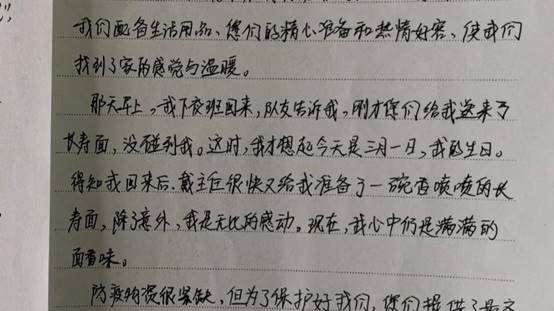 我们配备生活用品、您们的精心准备和热情好客，使我们
找到了家的感觉与温暖。
那天早上，我下夜班回来，队友告诉我，刚才您们给我送来了
长寿面，没碰到我。这时，我才想起今天是三月一日，我的生日。
得知我回来后，戴主任很快又给我准备了一碗香喷喷的长
寿面，除了意外，我是无比的感动。现在，我心中仍是满满的
面香味。
防疫物资很紧缺，但为了保护好我们，您们提供了最